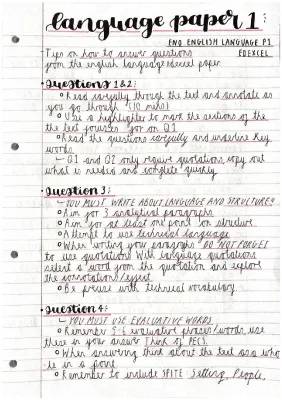 language paper 1:
ENG ENGLISH LANGUAGE P1
EDEXCEL
Tips on how to answer questions
from the english language edexcel paper
Questions 1&2:
Read carefully through the text and annotate as
you go through (10 mins)
Use a highlighter to mark the sections of the
the text focuses for on Q1
Read the questions carefully and underline key
words
Q1 and Q2 only require quotations, copy out
what is needed and complete quickly
Question 3:
YOU MUST WRITE ABOUT LANGUAGE AND STRUCTURE!
Aim for 3 analytical paragraphs
Aim for at least one point on structure
Attempt to use technical language
When writing your paragraphs DO NOT FORGET
to use quotations. With language quotations
select a word from the quotation and explore
the connotation/effect.
Be precise with technical vocabulary.
Question 4:
YOU MUST USE EVALUATIVE WORDS
Remember 5-6 evaluative phrases/words, use
these in your answer. Think of PECS.
When answering think about the text as a who
le in a point
Remember to include SPITE Setting, People,